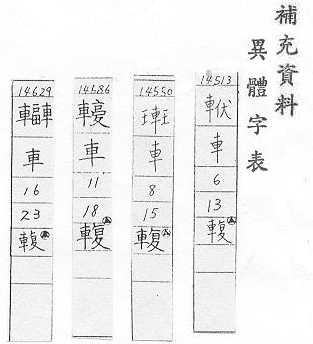 補充資料
異體字表
14513
車
6
13
輹
14550
車
8
15
輹
14586
車
11
18
輹
14629
車
16
23
輹